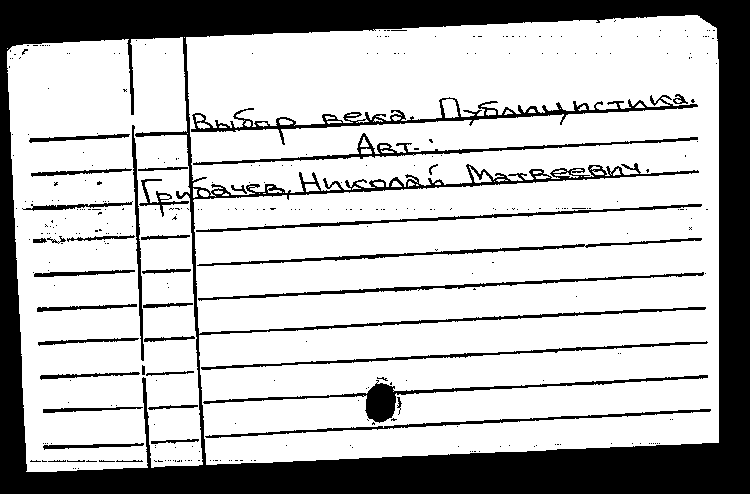 Выбор века. Публицистика.
Авт.:
Грибачев, Николай Матвеевич.